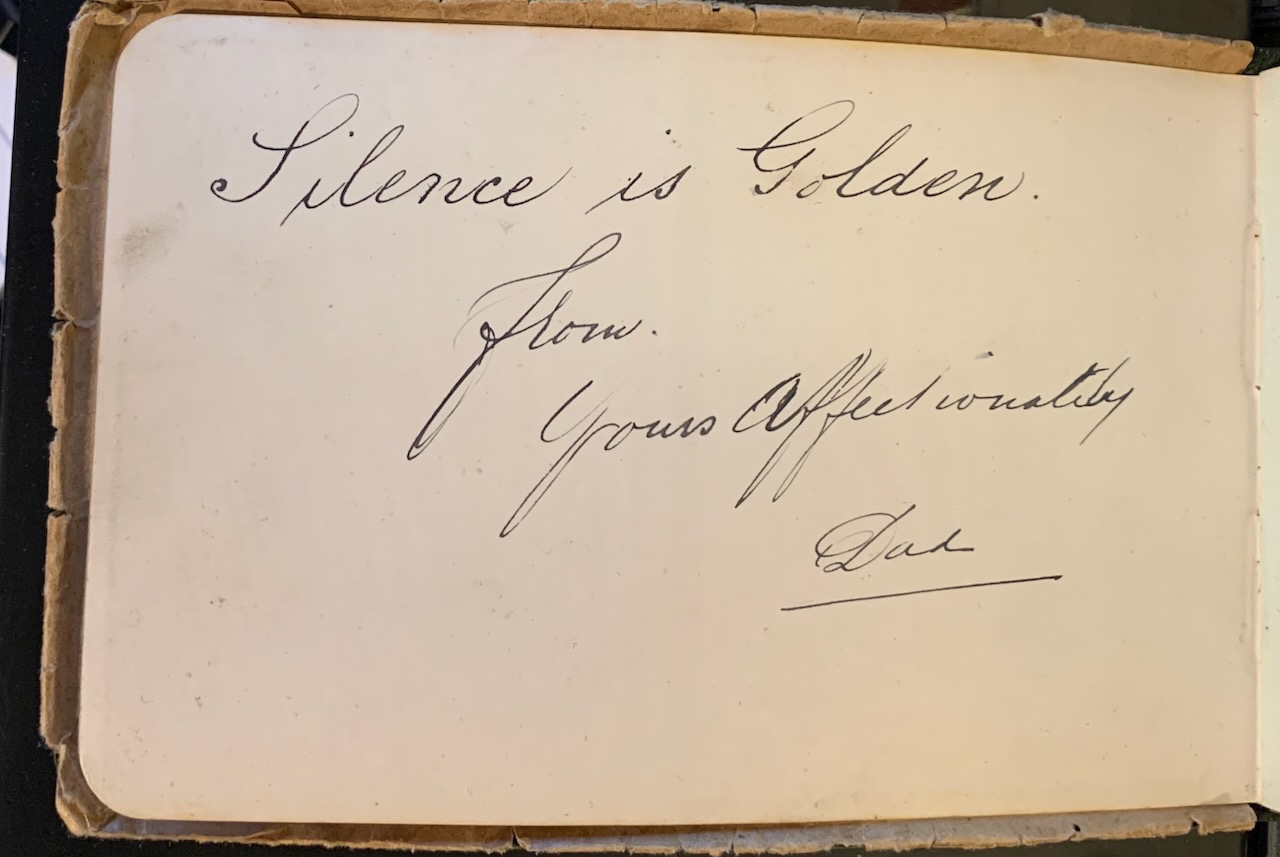 Silence is Golden.
from.
Yours Affectionately
Dad